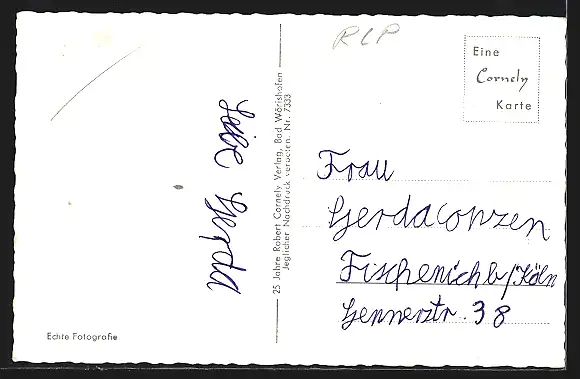 RLP
Eine
Cornely
Karte
Liebe Gerda
25 Jahre Robert Cornely Verlag, Bad Wörishofen
Jeglicher Nachdruck verboten. Nr. 7333
Frau
Gerda Conzen
Fischenich b/Köln
Gennerstr. 38
Echte Fotografie